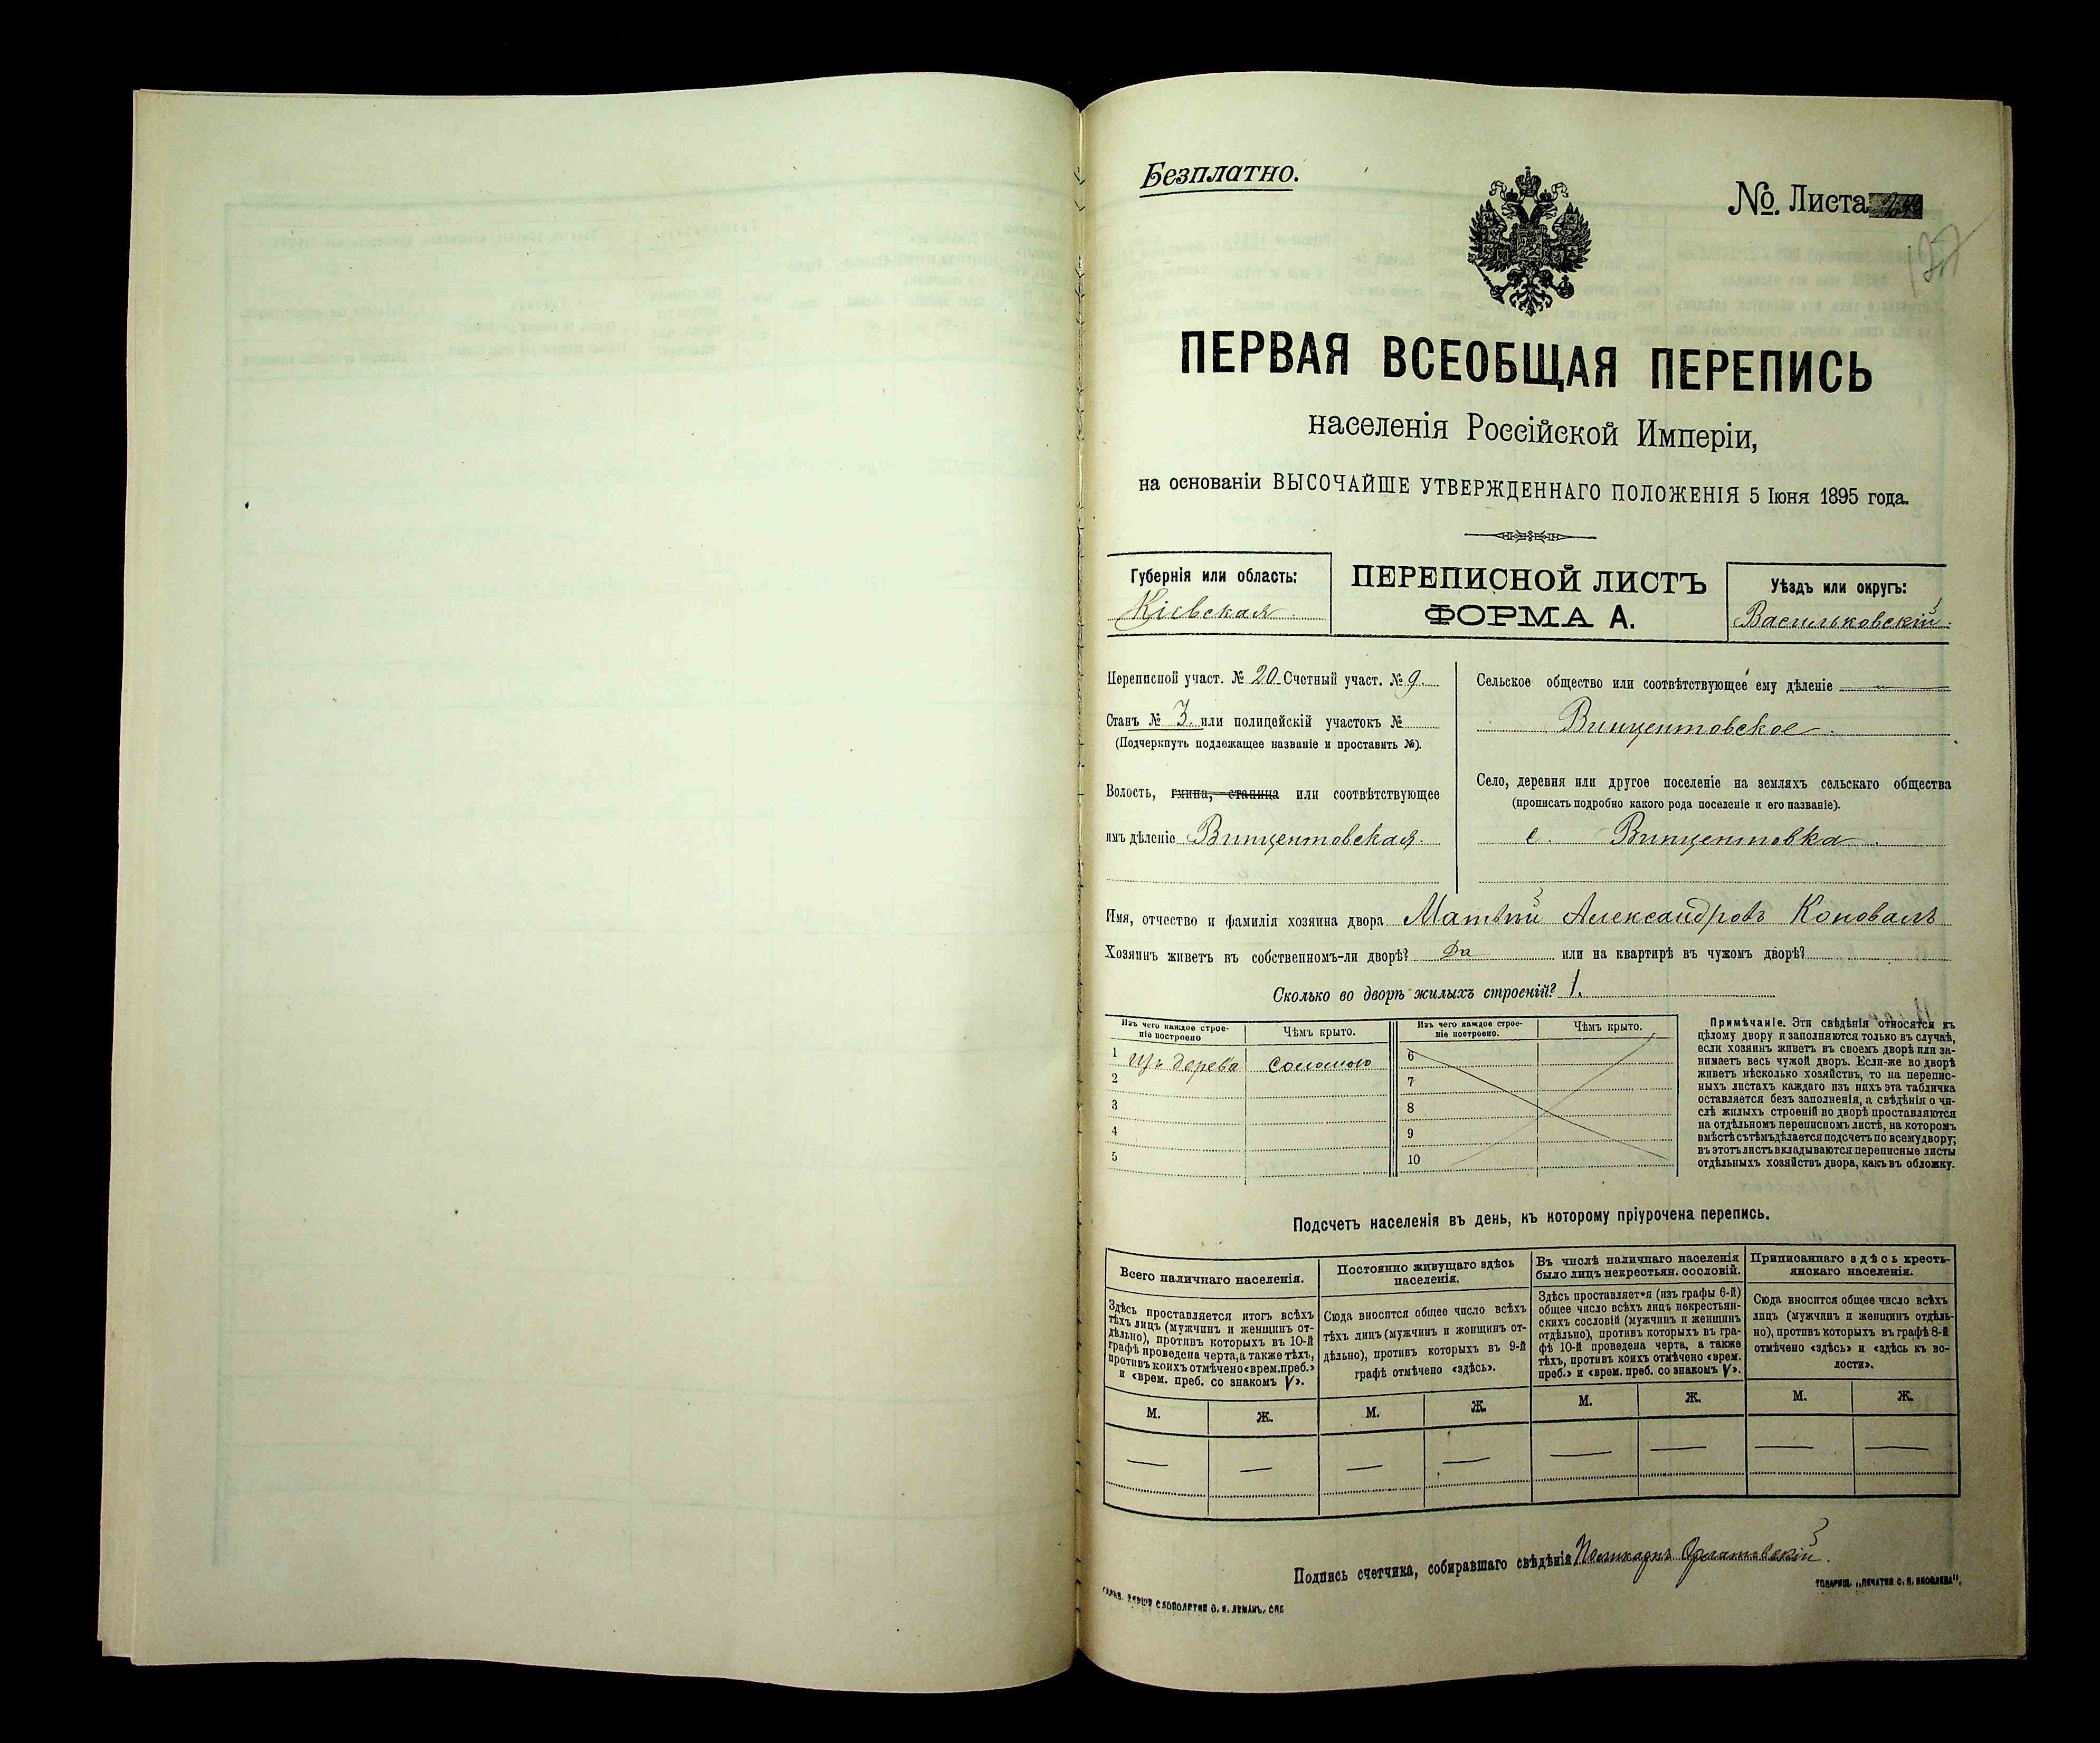 Безплатно.
№. Листа
ПЕРВАЯ ВСЕОБЩАЯ ПЕРЕПИСЬ
населенія Россійской Имперіи,
на основаніи ВЫСОЧАЙШЕ УТВЕРЖДЕННАГО ПОЛОЖЕНІЯ 5 Іюня 1895 года.
Губернія или область:
Кіевская
ПЕРЕПИСНОЙ ЛИСТЪ
ФОРМА А.
Уѣздъ или округъ:
Васильковскій
Переписной участ. № 20 Счетный участ. № 9.
Станъ № 3. или полицейскій участокъ №
(Подчеркнуть подлежащее названіе и проставить №).
Волость, гмина, станица или соотвѣтствующее
имъ дѣленіе Винцентовская.
Сельское общество или соотвѣтствующее ему дѣленіе
Винцентовское
Село, деревня или другое поселеніе на земляхъ сельскаго общества
(прописать подробно какого рода поселеніе и его названіе).
с. Винцентовка
Имя, отчество и фамилія хозяина двора Матвѣй Александровъ Коновалъ
Хозяинъ живетъ въ собственномъ-ли дворѣ? Да или на квартирѣ въ чужомъ дворѣ?
Сколько во дворѣ жилыхъ строеній? 1.
Изъ чего каждое строе-
ніе построено
Чѣмъ крыто.
1 Изъ дерева соломою
2
3
4
5
Изъ чего каждое строе-
ніе построено.
Чѣмъ крыто.
6
7
8
9
10
Примѣчаніе. Эти свѣдѣнія относятся къ
цѣлому двору и заполняются только въ случаѣ,
если хозяинъ живетъ въ своемъ дворѣ или за-
нимаетъ весь чужой дворъ. Если-же во дворѣ
живетъ нѣсколько хозяйствъ, то на перепис-
ныхъ листахъ каждаго изъ нихъ эта табличка
оставляется безъ заполненія, а свѣдѣнія о чи-
слѣ жилыхъ строеній во дворѣ проставляются
на отдѣльномъ переписномъ листѣ, на которомъ
вмѣстѣ съ тѣмъ дѣлается подсчетъ по всему двору;
въ этотъ листъ вкладываются переписные листы
отдѣльныхъ хозяйствъ двора, какъ въ обложку.
Подсчетъ населенія въ день, къ которому пріурочена перепись.
Всего наличнаго населенія.
Здѣсь проставляется итогъ всѣхъ
тѣхъ лицъ (мужчинъ и женщинъ от-
дѣльно), противъ которыхъ въ 10-й
графѣ проведена черта, а также тѣхъ,
противъ коихъ отмѣчено «врем. преб.»
и «врем. преб. со знакомъ V».
М. Ж.
— —
Постоянно живущаго здѣсь
населенія.
Сюда вносится общее число всѣхъ
тѣхъ лицъ (мужчинъ и женщинъ от-
дѣльно), противъ которыхъ въ 9-й
графѣ отмѣчено «здѣсь».
М. Ж.
— —
Въ числѣ наличнаго населенія
было лицъ некрестьян. сословій.
Здѣсь проставляется (изъ графы 6-й)
общее число всѣхъ лицъ некрестьян-
скихъ сословій (мужчинъ и женщинъ
отдѣльно), противъ которыхъ въ гра-
фѣ 10-й проведена черта, а также
тѣхъ, противъ коихъ отмѣчено «врем.
преб.» и «врем. преб. со знакомъ V».
М. Ж.
— —
Приписаннаго здѣсь кресть-
янскаго населенія.
Сюда вносится общее число всѣхъ
лицъ (мужчинъ и женщинъ отдѣль-
но), противъ которыхъ въ графѣ 8-й
отмѣчено «здѣсь» и «здѣсь къ во-
лости».
М. Ж.
— —
Подпись счетчика, собиравшаго свѣдѣнія
ТОВАРИЩ. „ПЕЧАТНЯ С. П. ЯКОВЛЕВА“.
О. И. ЛЕМАНЪ, СПБ